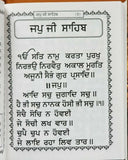 ਜਪੁ ਜੀ ਸਾਹਿਬ
ਜਪੁ ਜੀ ਸਾਹਿਬ
ੴ ਸਤਿ ਨਾਮੁ ਕਰਤਾ ਪੁਰਖੁ
ਨਿਰਭਉ ਨਿਰਵੈਰੁ ਅਕਾਲ ਮੂਰਤਿ
ਅਜੂਨੀ ਸੈਭੰ ਗੁਰ ਪ੍ਰਸਾਦਿ ॥
॥ ਜਪੁ ॥
ਆਦਿ ਸਚੁ ਜੁਗਾਦਿ ਸਚੁ ॥
ਹੈ ਭੀ ਸਚੁ ਨਾਨਕ ਹੋਸੀ ਭੀ ਸਚੁ ॥੧॥
ਸੋਚੈ ਸੋਚਿ ਨ ਹੋਵਈ
ਜੇ ਸੋਚੀ ਲਖ ਵਾਰ ॥
ਚੁਪੈ ਚੁਪ ਨ ਹੋਵਈ
ਜੇ ਲਾਇ ਰਹਾ ਲਿਵ ਤਾਰ ॥